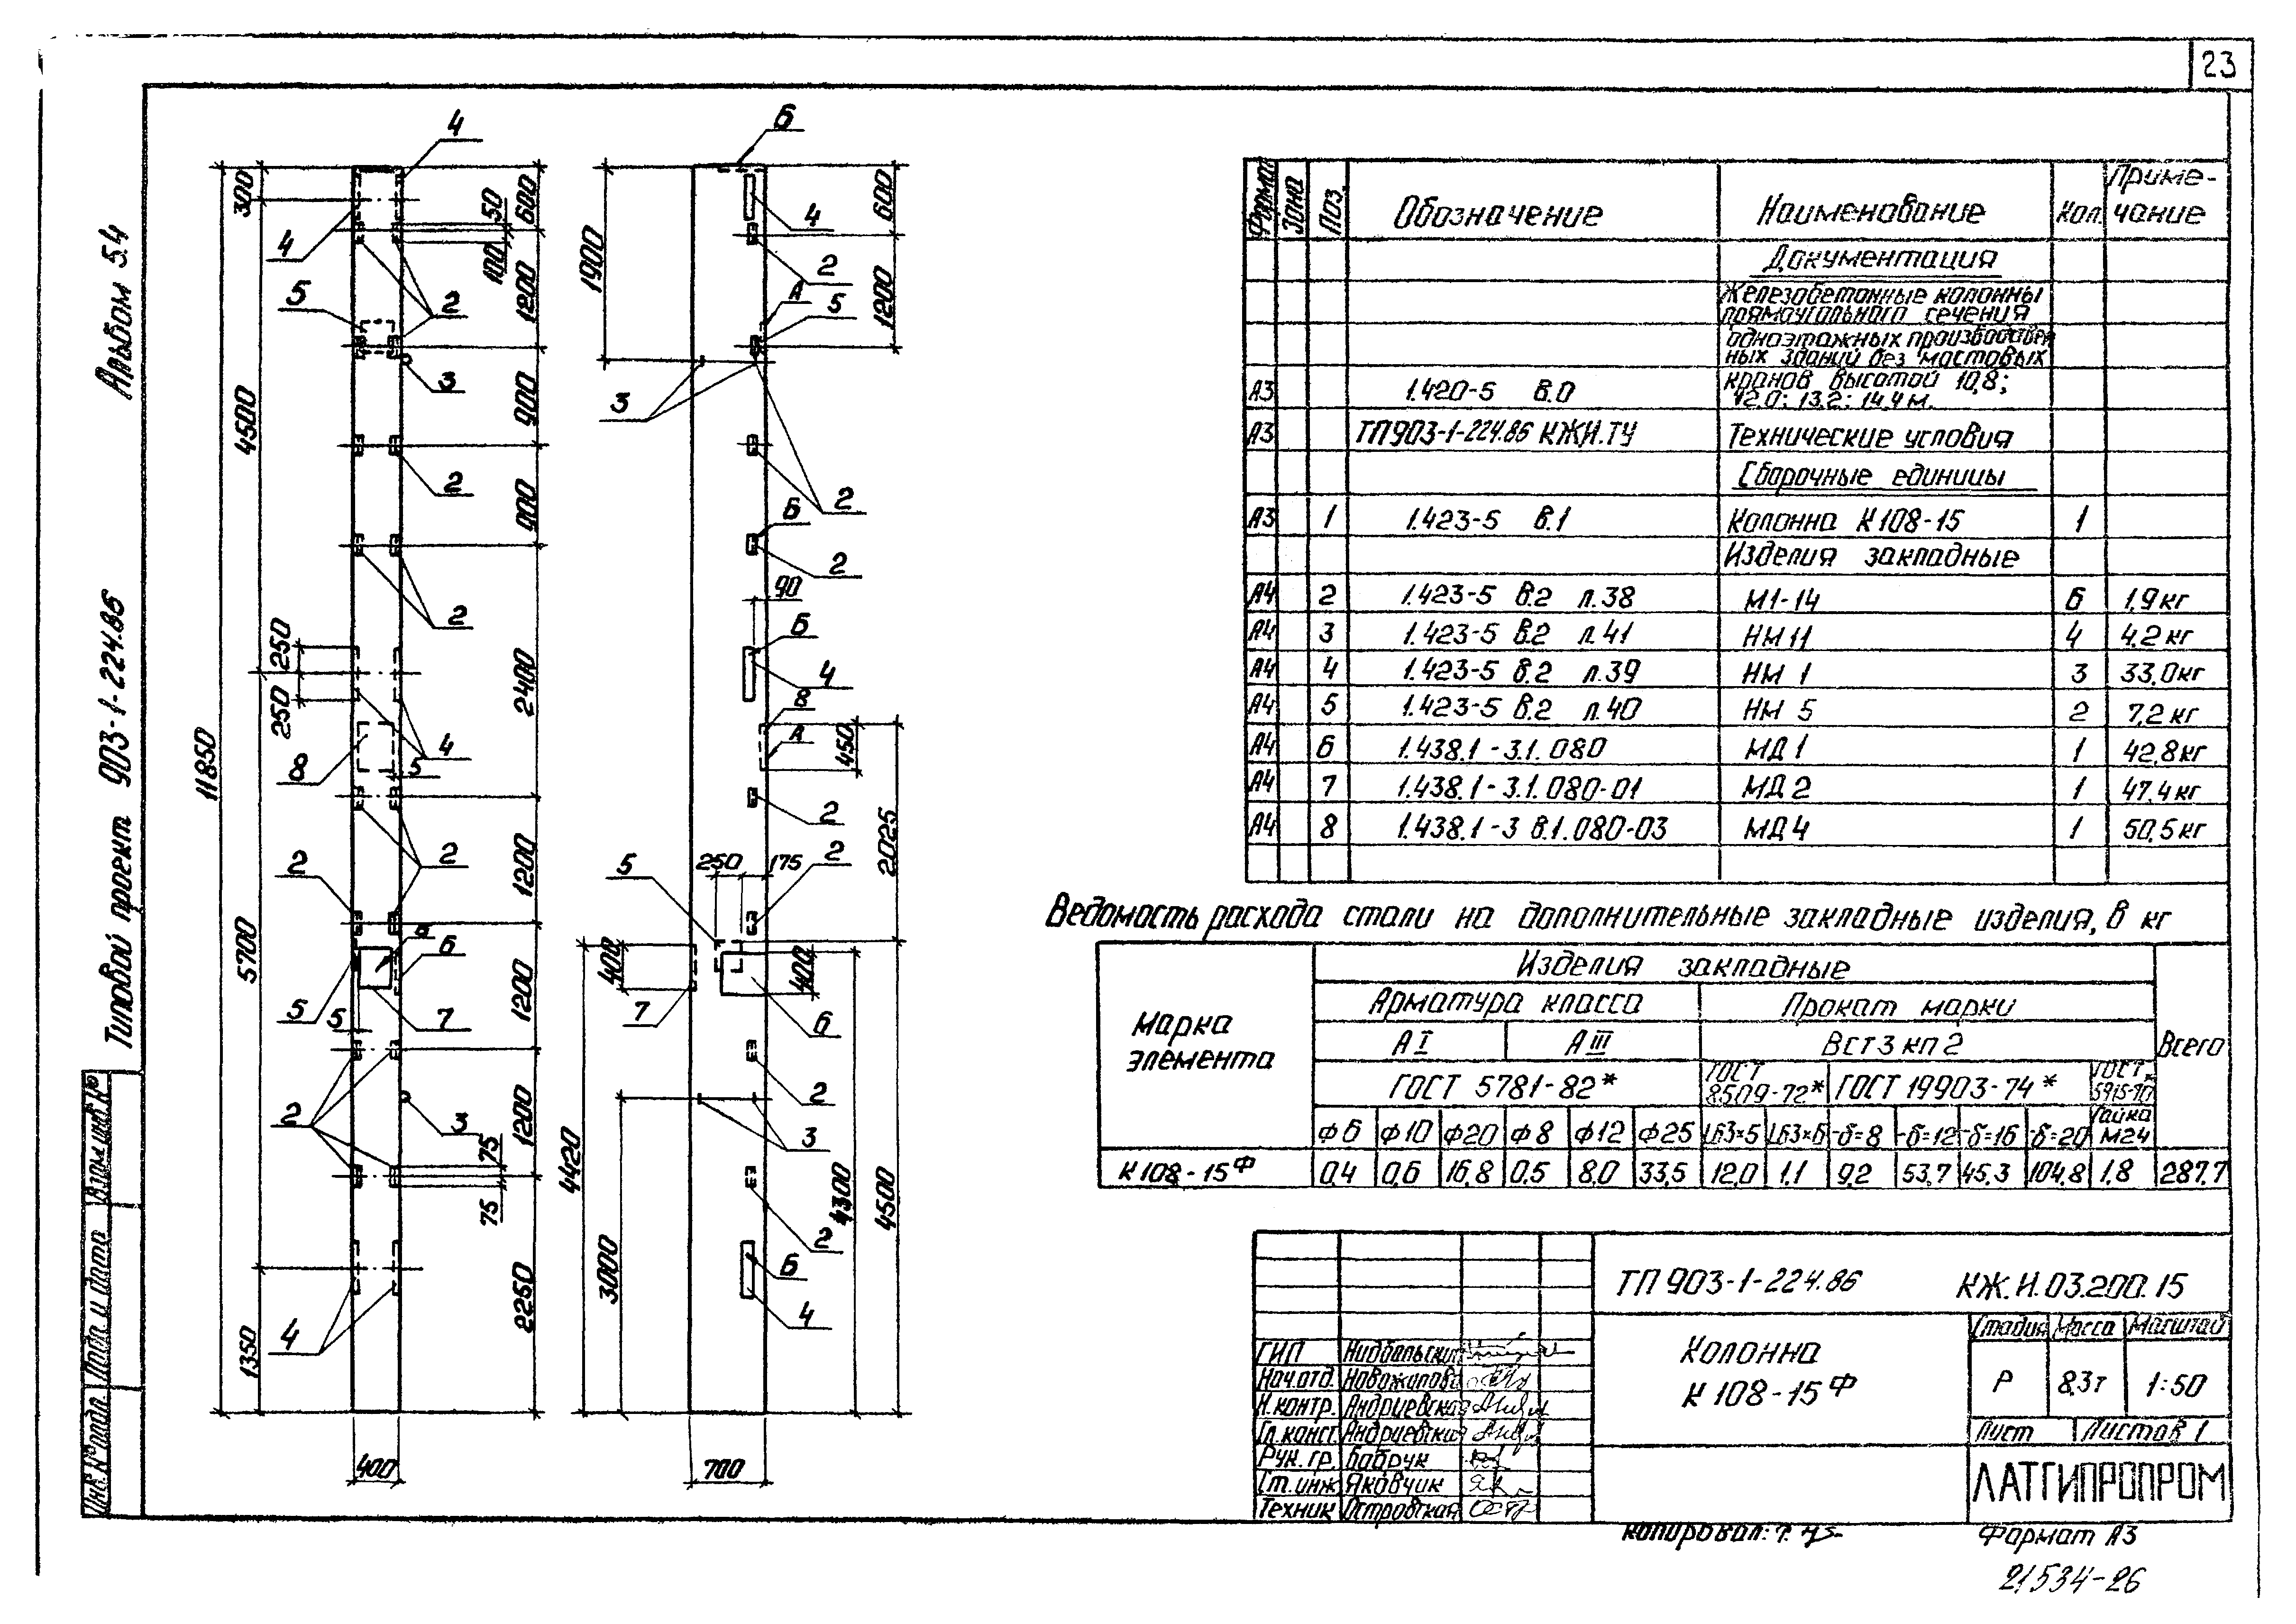 23
Альбом 5.4
Типовой проект 903-1-224.86
Инв. № подл. Подп. и дата Взам. инв. №
4
300
600
50
100
4
2
5
1200
3
4500
900
2
900
2
250
250
2400
11850
8
5
4
2
2
1200
5700
6
5
5
7
1200
2
3
1200
75
75
4
1350
2250
400
6
1900
4
600
2
А
5
1200
3
2
Б
2
90
Б
4
8
А
450
2
2025
5
250
175
2
400
7
400
6
2
3
4420
3000
2
4300
4500
Б
4
700
Формат Зона Поз. Обозначение Наименование Кол. Приме-
чание
Документация
Железобетонные колонны
прямоугольного сечения
одноэтажных производствен
ных зданий без мостовых
А3 1.420-5 в.0 кранов высотой 10,8;
12.0; 13.2; 14.4 м.
А3 ТП903-1-224.86 КЖИ.ТУ Технические условия
Сборочные единицы
А3 1 1.423-5 в.1 Колонна К108-15 1
Изделия закладные
А4 2 1.423-5 в.2 л.38 М1-14 6 1,9кг
А4 3 1.423-5 в.2 л.41 НМ11 4 4,2кг
А4 4 1.423-5 в.2 л.39 НМ 1 3 33,0кг
А4 5 1.423-5 в.2 л.40 НМ 5 2 7,2 кг
А4 6 1.438.1-3.1.080 МД1 1 42,8кг
А4 7 1.438.1-3.1.080-01 МД2 1 47,4кг
А4 8 1.438.1-3 в.1.080-03 МД4 1 50,5кг
Ведомость расхода стали на дополнительные закладные изделия, в кг
Марка
элемента
Изделия закладные
Всего
Арматура класса Прокат марки
А I А III Вст3 кп2
ГОСТ 5781-82* ГОСТ 8509-72* ГОСТ 19903-74* ГОСТ 5915-70
ф6 ф10 ф20 ф8 ф12 ф25 L63×5 L63×6 -δ=8 -δ=12 -δ=16 -δ=20 Гайка М24
К108-15Ф 0,4 0,6 16,8 0,5 8.0 33,5 12,0 1.1 9,2 53,7 45.3 104,8 1,8 287,7
ТП 903-1-224.86 КЖ.И.03.200.15
Колонна
К 108-15Ф
Стадия Масса Масштаб
Р 8,3т 1:50
Лист Листов 1
ЛАТГИПРОПРОМ
ГИП
Нач.отд.
Н.контр. Андриевская
Гл.конст. Андриевская
Рук. гр. Бабрук
Ст.инж. Яковчик
Техник Островская
Копировал:
Формат А3
21534-26